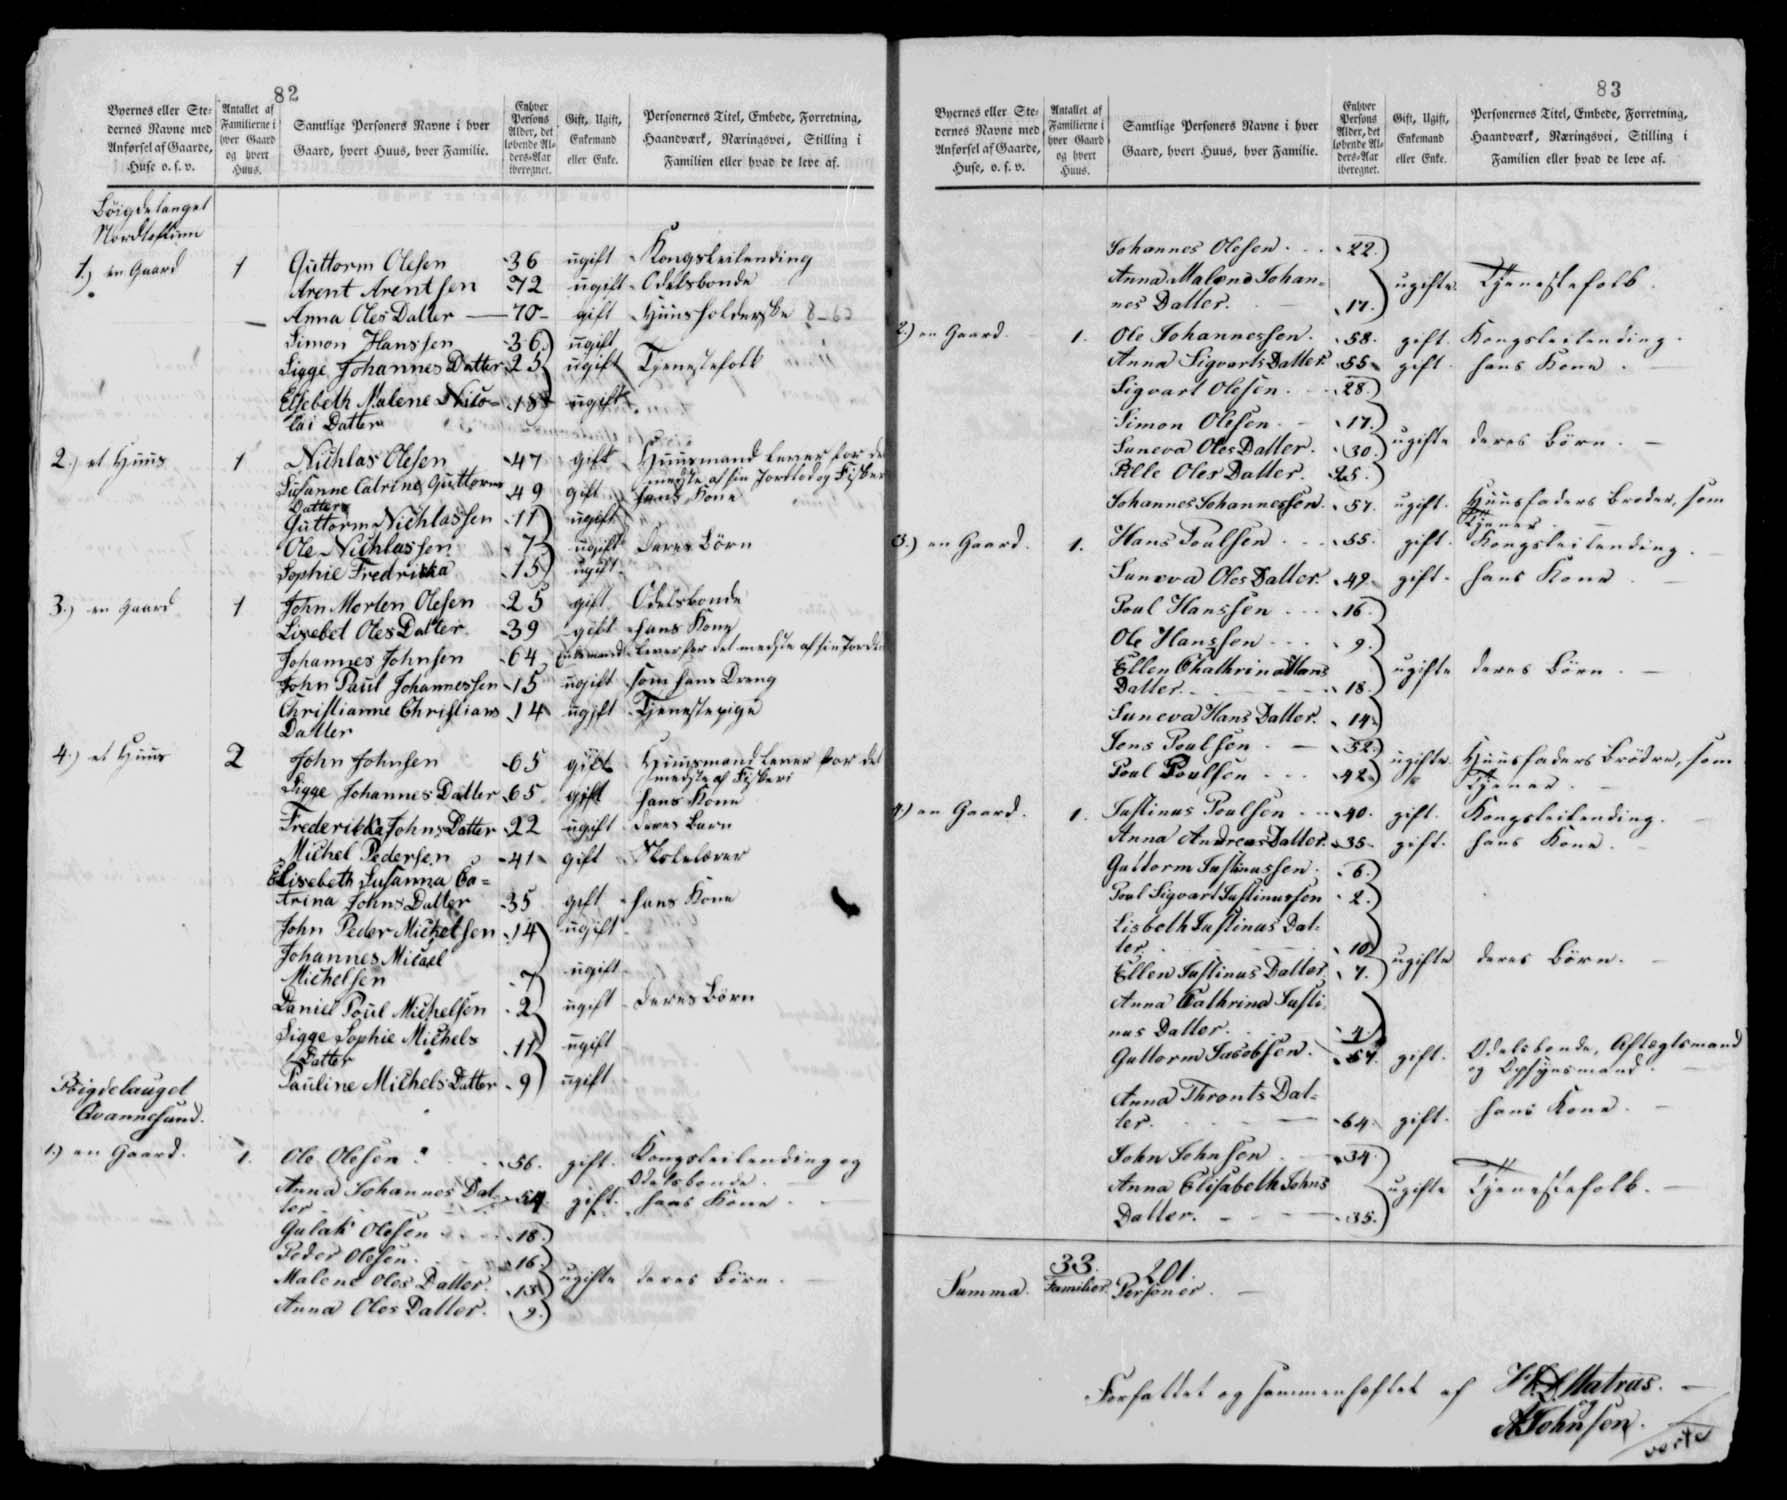 82
Byernes eller Ste-
dernes Navne med
Anførsel af Gaarde,
Huse o. s. v.
Antallet af
Familierne i
hver Gaard
og hvert
Huus.
Samtlige Personers Navne i hver
Gaard, hvert Huus, hver Familie.
Enhver
Persons
Alder, det
løbende Al-
ders-Aar
iberegnet.
Gift, Ugift,
Enkemand
eller Enke.
Personernes Titel, Embede, Forretning,
Haandværk, Næringsvei, Stilling i
Familien eller hvad de leve af.
Böigdelauget
1.) en Gaard 1 Guttorm Olesen 36 ugift Kongsleilending
Arent Arentsen 72 ugift Odelsbonde
Anna Oles Datter 70 gift Huusholderske
Simon Hanssen 36 ugift
Sigge Johannes Datter 25 ugift Tjenestefolk
Elsebeth Malene Nico- 18 ugift
lai Datter
2.) et Huus 1 Nichlas Olesen 47 gift Huusmand lever for det
meste af sin Jordlod og Fisker
Susanne Catrine Guttorms 49 gift hans Kone
Datter
Guttorm Nichlassen 11 ugift
Ole Nichlassen 7 ugift deres Börn
Sophie Fredrikka 15 ugift
3.) en Gaard 1 John Morten Olesen 25 gift Odelsbonde
Lisebet Oles Datter 39 gift hans Kone
Johannes Johnsen 64 Enkemand lever for det medste af sin Jordlod
John Paul Johannessen 15 ugift som hans Dreng
Christianne Christians 14 ugift Tjenestepige
Datter
4.) et Huus 2 John Johnsen 65 gift Huusmand lever for det
medste af Fiskeri
Sigge Johannes Datter 65 gift hans Kone
Frederikka Johns Datter 22 ugift deres Barn
Michel Pedersen 41 gift Skolelærer
Elisebeth Susanna Ca=
trina Johns Datter 35 gift hans Kone
John Peder Michelsen 14 ugift
Johannes Micael
Michelsen 7 ugift
Daniel Poul Michelsen 2 ugift deres Börn
Sigge Sophie Michels 11 ugift
Datter
Pauline Michels Datter 9 ugift
Böigdelauget
Qvannesund.
1.) en Gaard. 1. Ole Olesen 56. gift. Kongsleilending og
Odelsbonde.
Anna Johannes Dat- 54 gift. hans Kone.
ter
Gulak Olesen 18.
Peder Olesen. 16.
Malene Oles Datter. 13 ugifte deres Börn.
Anna Oles Datter. 9.
83
Byernes eller Ste-
dernes Navne med
Anførsel af Gaarde,
Huse, o. s. v.
Antallet af
Familierne i
hver Gaard
og hvert
Huus.
Samtlige Personers Navne i hver
Gaard, hvert Huus, hver Familie.
Enhver
Persons
Alder, det
løbende Al-
ders-Aar
iberegnet.
Gift, Ugift,
Enkemand
eller Enke.
Personernes Titel, Embede, Forretning,
Haandværk, Næringsvei, Stilling i
Familien eller hvad de leve af.
Johannes Olesen. 22.
Anna Malene Johan=
nes Datter. 17. ugifte Tjenestefolk.
2.) en Gaard. 1. Ole Johannessen. 58. gift. Kongsleilending.
Anna Sigvarts Datter. 55 gift. hans Kone.
Sigvart Olesen. 28.
Simon Olesen. 17.
Suneva Oles Datter. 30. ugifte deres Börn.
Pelle Oles Datter. 25.
Johannes Johannessen. 57. ugift. Huusfaders Broder, som
tjener.
3.) en Gaard. 1. Hans Poulsen 55. gift. Kongsleilending.
Suneva Oles Datter. 49. gift. hans Kone.
Poul Hanssen 16.
Ole Hanssen 9.
Ellen Chathrina Hans
Datter. 18. ugifte deres Börn.
Suneva Hans Datter. 14.
Jens Poulsen. 52. ugifte Huusfaders Brödre, som
Poul Poulsen 42. tjener.
4.) en Gaard. 1. Justinus Poulsen 40. gift. Kongsleilending.
Anna Andreas Datter. 35. gift. hans Kone.
Guttorm Justinussen. 6.
Poul Sigvart Justinussen 2.
Lisbeth Justinus Dat=
ter. 10
Ellen Justinus Datter. 7. ugifte deres Börn.
Anna Cathrina Justi
nus Datter. 4.
Guttorm Jacobsen. 57. gift. Odelsbonde, Aftægtsmand
og Opsynsmand.
Anna Thronts Dat=
ter. 64. gift. hans Kone.
John Johnsen 34.
Anna Elisabeth Johns ugifte Tjenestefolk.
Datter. 35.
Summa. 33. Familier. 201. Personer.
Forfattet og sammenhæftet af Matras.
og
A. Johnsen.
verte